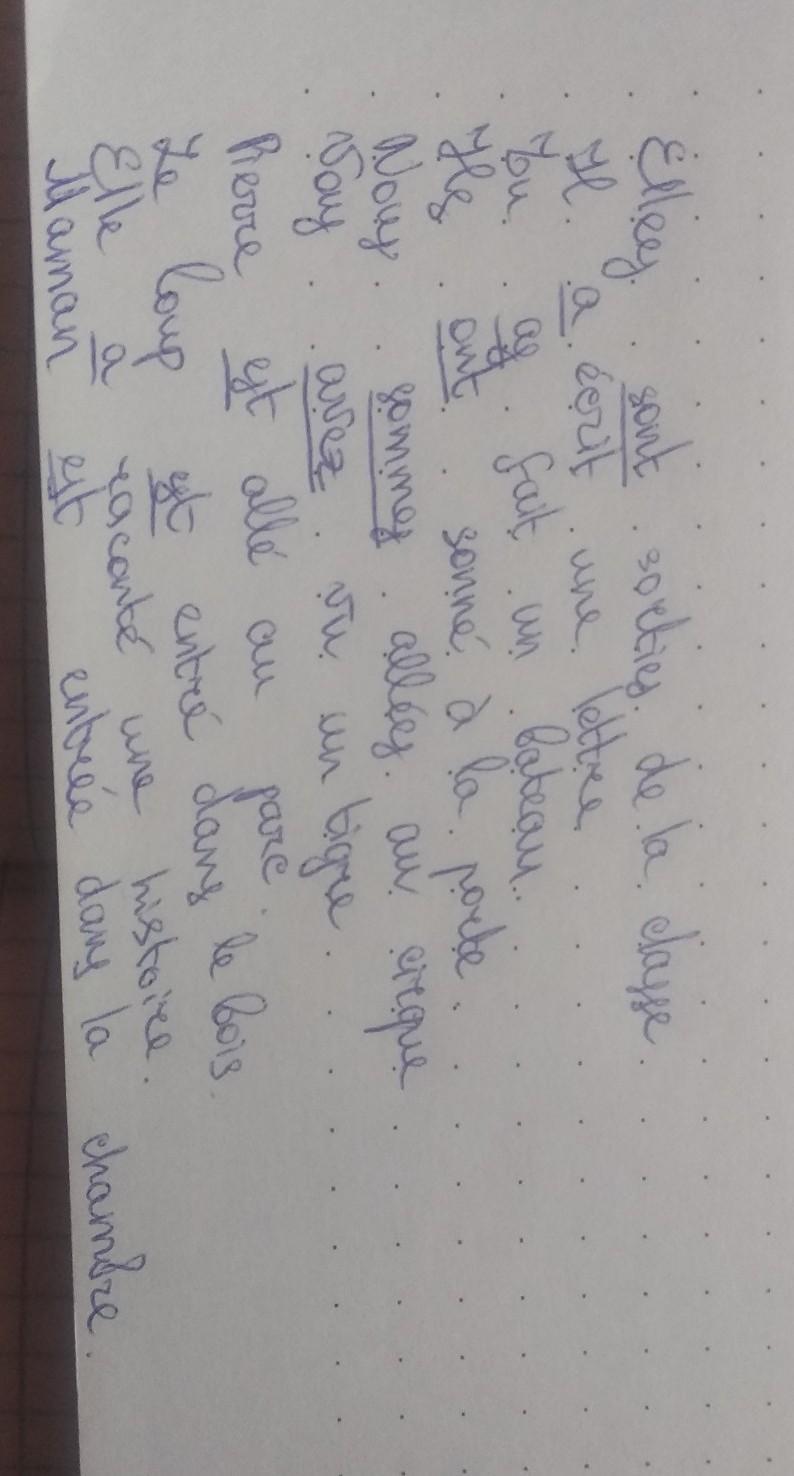 Elles sont sorties de la classe
Il a écrit une lettre
Tu as fait un bateau.
Ils ont sonné à la porte
Nous sommes allées au cirque
Vous avez vu un tigre
Pierre est allé au parc.
Le loup est entré dans le bois.
Elle a raconté une histoire.
Maman est entrée dans la chambre.